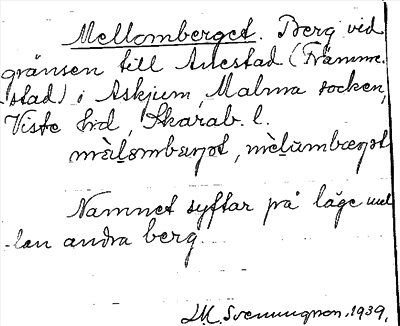 Mellomberget. Berg vid
gränsen till Anestad (Framme-
stad) i Askjum, Malma socken,
Viste hd, Skarab. l.
Namnet syftar på läge mel
-lan andra berg
Svenungsson. 1939.